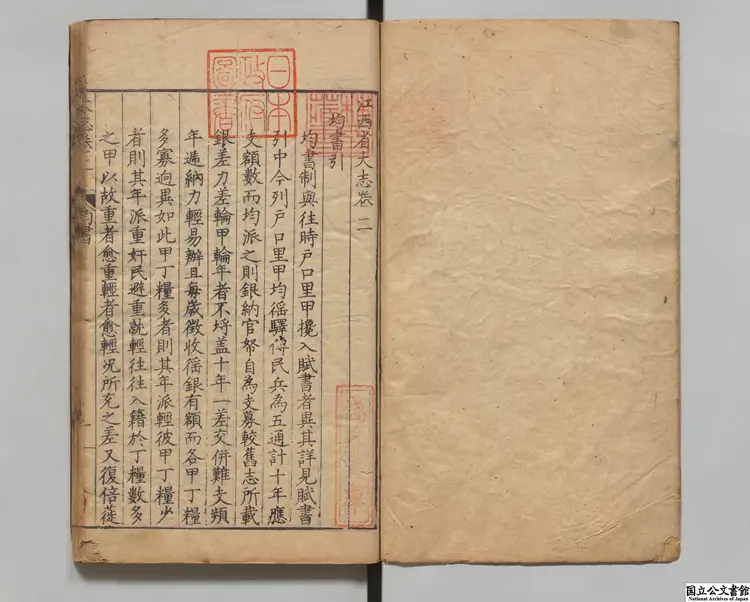 江西省大志卷二
均書引
均書制與往時戶口里甲攙入賦書者異其詳見賦書
引中今列戶口里甲均徭驛傳民兵為五通計十年應
支額數而均派之則銀納官帑自為支募較舊志所載
銀差力差輪甲輪年者不埒盖十年一差交併難支頻
年遞納力輕易辦且每歲徵收徭銀有額而各甲丁糧
多寡迥異如此甲丁糧多者則其年派輕彼甲丁糧少
者則其年派重奸民避重就輕往往入籍於丁糧數多
之甲以故重者愈重輕者愈輕況所充之差又復倍蓰
均書
日本
政府
圖書
国立公文書館
National Archives of Japan